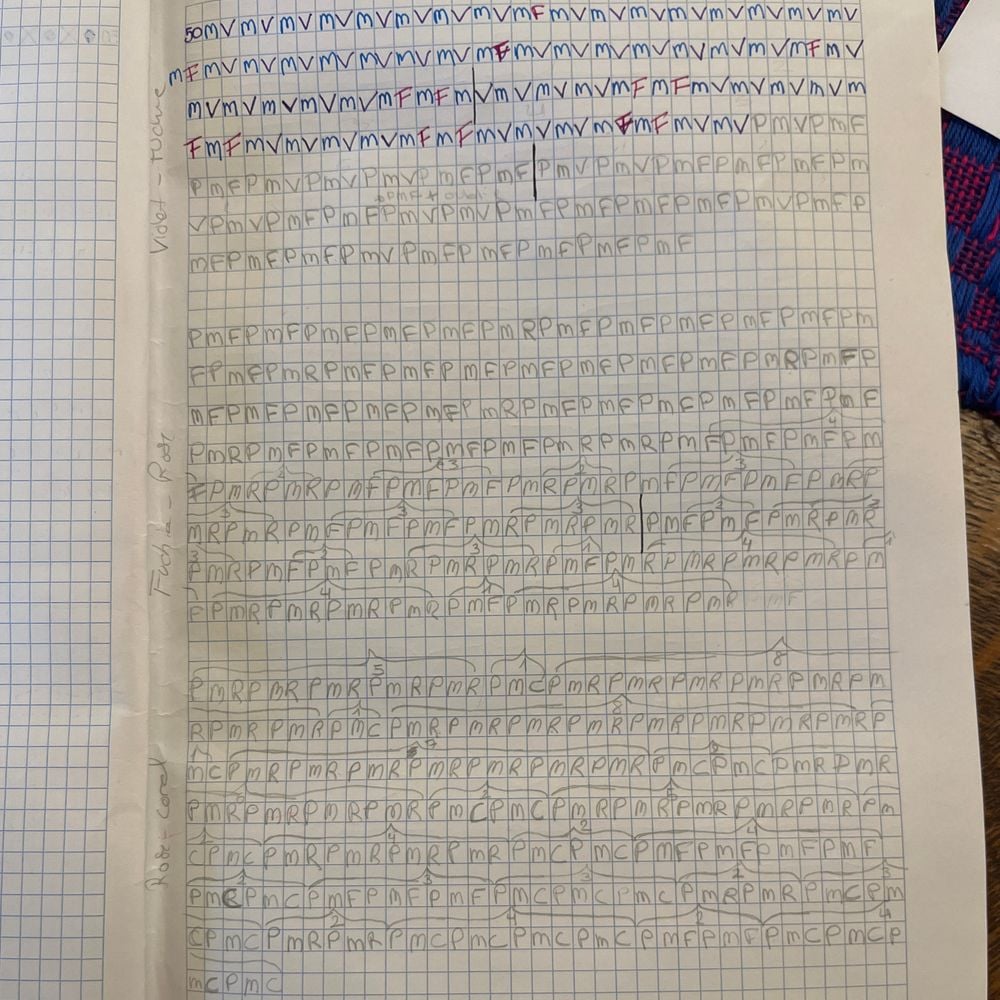 50mVmVmVmVmVmVmVmVmFmVmVmVmVmVmVmVmV
mFmVmVmVmVmVmVmVmFmVmVmVmVmVmVmVmFmV
mVmVmVmVmVmFmFmVmVmVmVmFmFmVmVmVmVm
FmFmVmVmVmVmFmFmVmVmVmFmFmVmVPmVPmF
PmFPmVPmVPmVPmFPmFPmVPmVPmFPmFPmFPm
VPmVPmFPmFPmVPmVPmFPmFPmFPmFPmVPmFP
mFPmFPmFPmVPmFPmFPmFPmFPmF
Violet - Fuchie
PmFPmFPmFPmFPmFPmRPmFPmFPmFPmFPmFPm
FPmFPmRPmFPmFPmFPmFPmFPmFPmFPmRPmFP
mFPmFPmFPmFPmFPmRPmFPmFPmFPmFPmFPmF
PmRPmFPmFPmFPmFPmFPmRPmRPmFPmFPmFPm
FPmRPmRPmFPmFPmFPmRPmRPmFPmFPmFPmRP
mRPmRPmFPmFPmFPmRPmRPmRPmFPmFPmRPmR
PmRPmFPmFPmRPmRPmRPmFPmRPmRPmRPmRPm
FPmRPmRPmRPmRPmFPmRPmRPmRPmR
Fuchia - Rose
PmRPmRPmRPmRPmRPmCPmRPmRPmRPmRPmRPm
RPmRPmRPmCPmRPmRPmRPmRPmRPmRPmRPmRP
mCPmRPmRPmRPmRPmRPmRPmRPmCPmCPmRPmR
PmRPmRPmRPmRPmCPmCPmRPmRPmRPmRPmRPm
CPmCPmRPmRPmRPmRPmCPmCPmFPmFPmFPmF
PmCPmCPmFPmFPmFPmCPmCPmCPmRPmRPmCPm
CPmCPmRPmRPmCPmCPmCPmCPmFPmFPmCPmCP
mCPmC
Rose - Corail